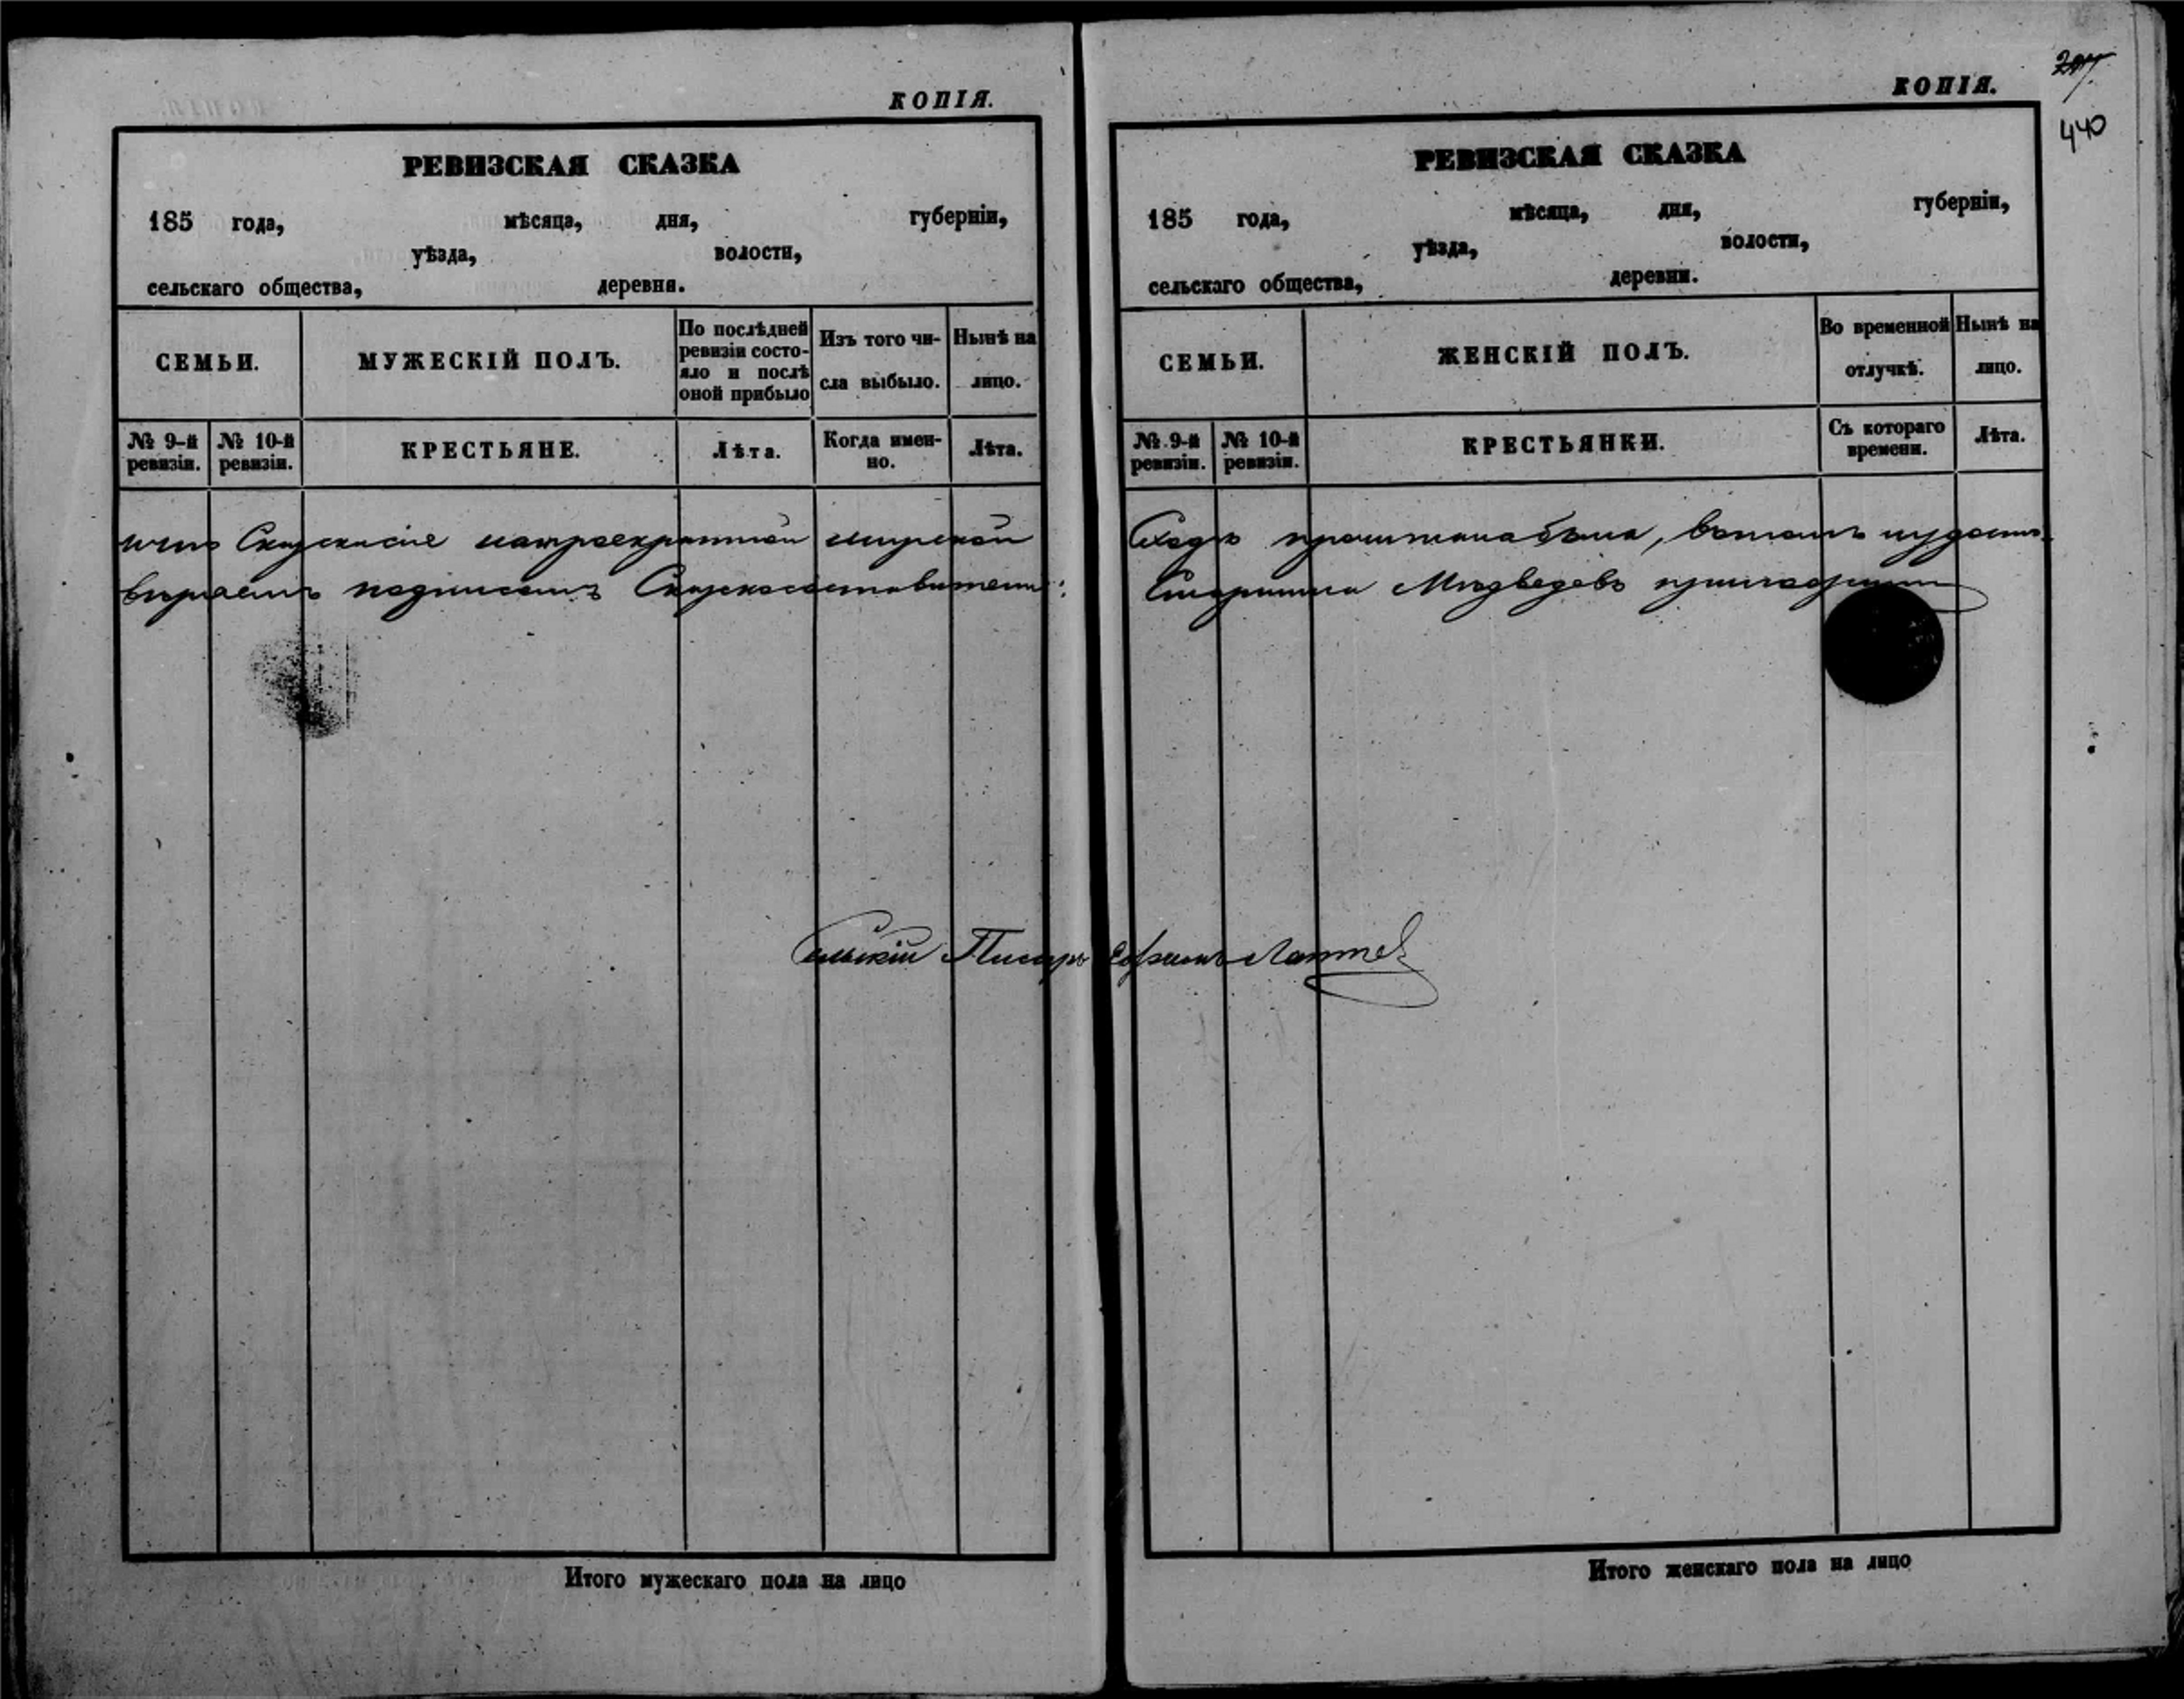 КОПІЯ.
РЕВИЗСКАЯ СКАЗКА
185 года, мѣсяца, дня, губерніи,
уѣзда, волости,
сельскаго общества, деревня.
СЕМЬИ.
МУЖЕСКІЙ ПОЛЪ.
По послѣдней
ревизіи состо-
яло и послѣ
оной прибыло
Изъ того чи-
сла выбыло.
Нынѣ на
лицо.
№ 9-й
ревизіи.
№ 10-й
ревизіи.
КРЕСТЬЯНЕ.
Лѣта.
Когда имен-
но.
Лѣта.
Итого мужескаго пола на лицо
КОПІЯ.
440
РЕВИЗСКАЯ СКАЗКА
185 года, мѣсяца, дня, губерніи,
уѣзда, волости,
сельскаго общества, деревни.
СЕМЬИ.
ЖЕНСКІЙ ПОЛЪ.
Во временной
отлучкѣ.
Нынѣ на
лицо.
№ 9-й
ревизіи.
№ 10-й
ревизіи.
КРЕСТЬЯНКИ.
Съ котораго
времени.
Лѣта.
Сходѣ прочитана была, вотомъ иудосто-
вѣряемъ подписомъ Старшина Медведевъ
Сельскій Писарь Ефимъ Лаптев
Итого женскаго пола на лицо